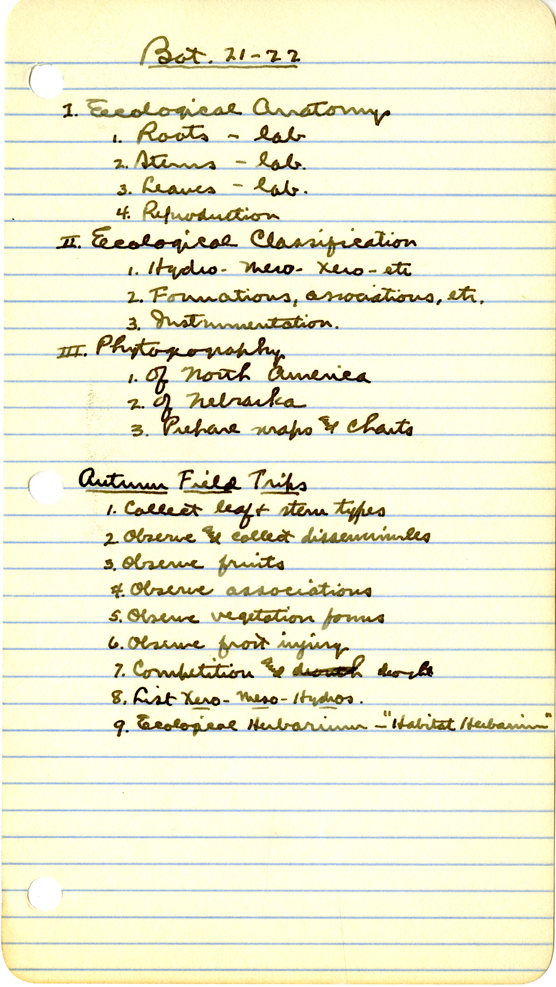 Bot. 21-22
I. Ecological Anatomy
1. Roots - lab
2. Stems - lab.
3. Leaves - lab.
4. Reproduction
II. Ecological Classification
1. Hydro- Meso- Xero- etc
2. Formations, associations, etc.
3. Instrumentation.
III. Phytogography
1. Of North America
2. Of Nebraska
3. Prepare maps & charts
Autumn Field Trips
1. Collect leaf & stem types
2 Observe & collect disseminules
3. Observe fruits
4. Observe associations
5. Observe vegetation forms
6. Observe frost injury
7. Competition &
8. List Xero- Meso- Hydros.
9. Ecological Herbarium - "Habitat Herbarium"